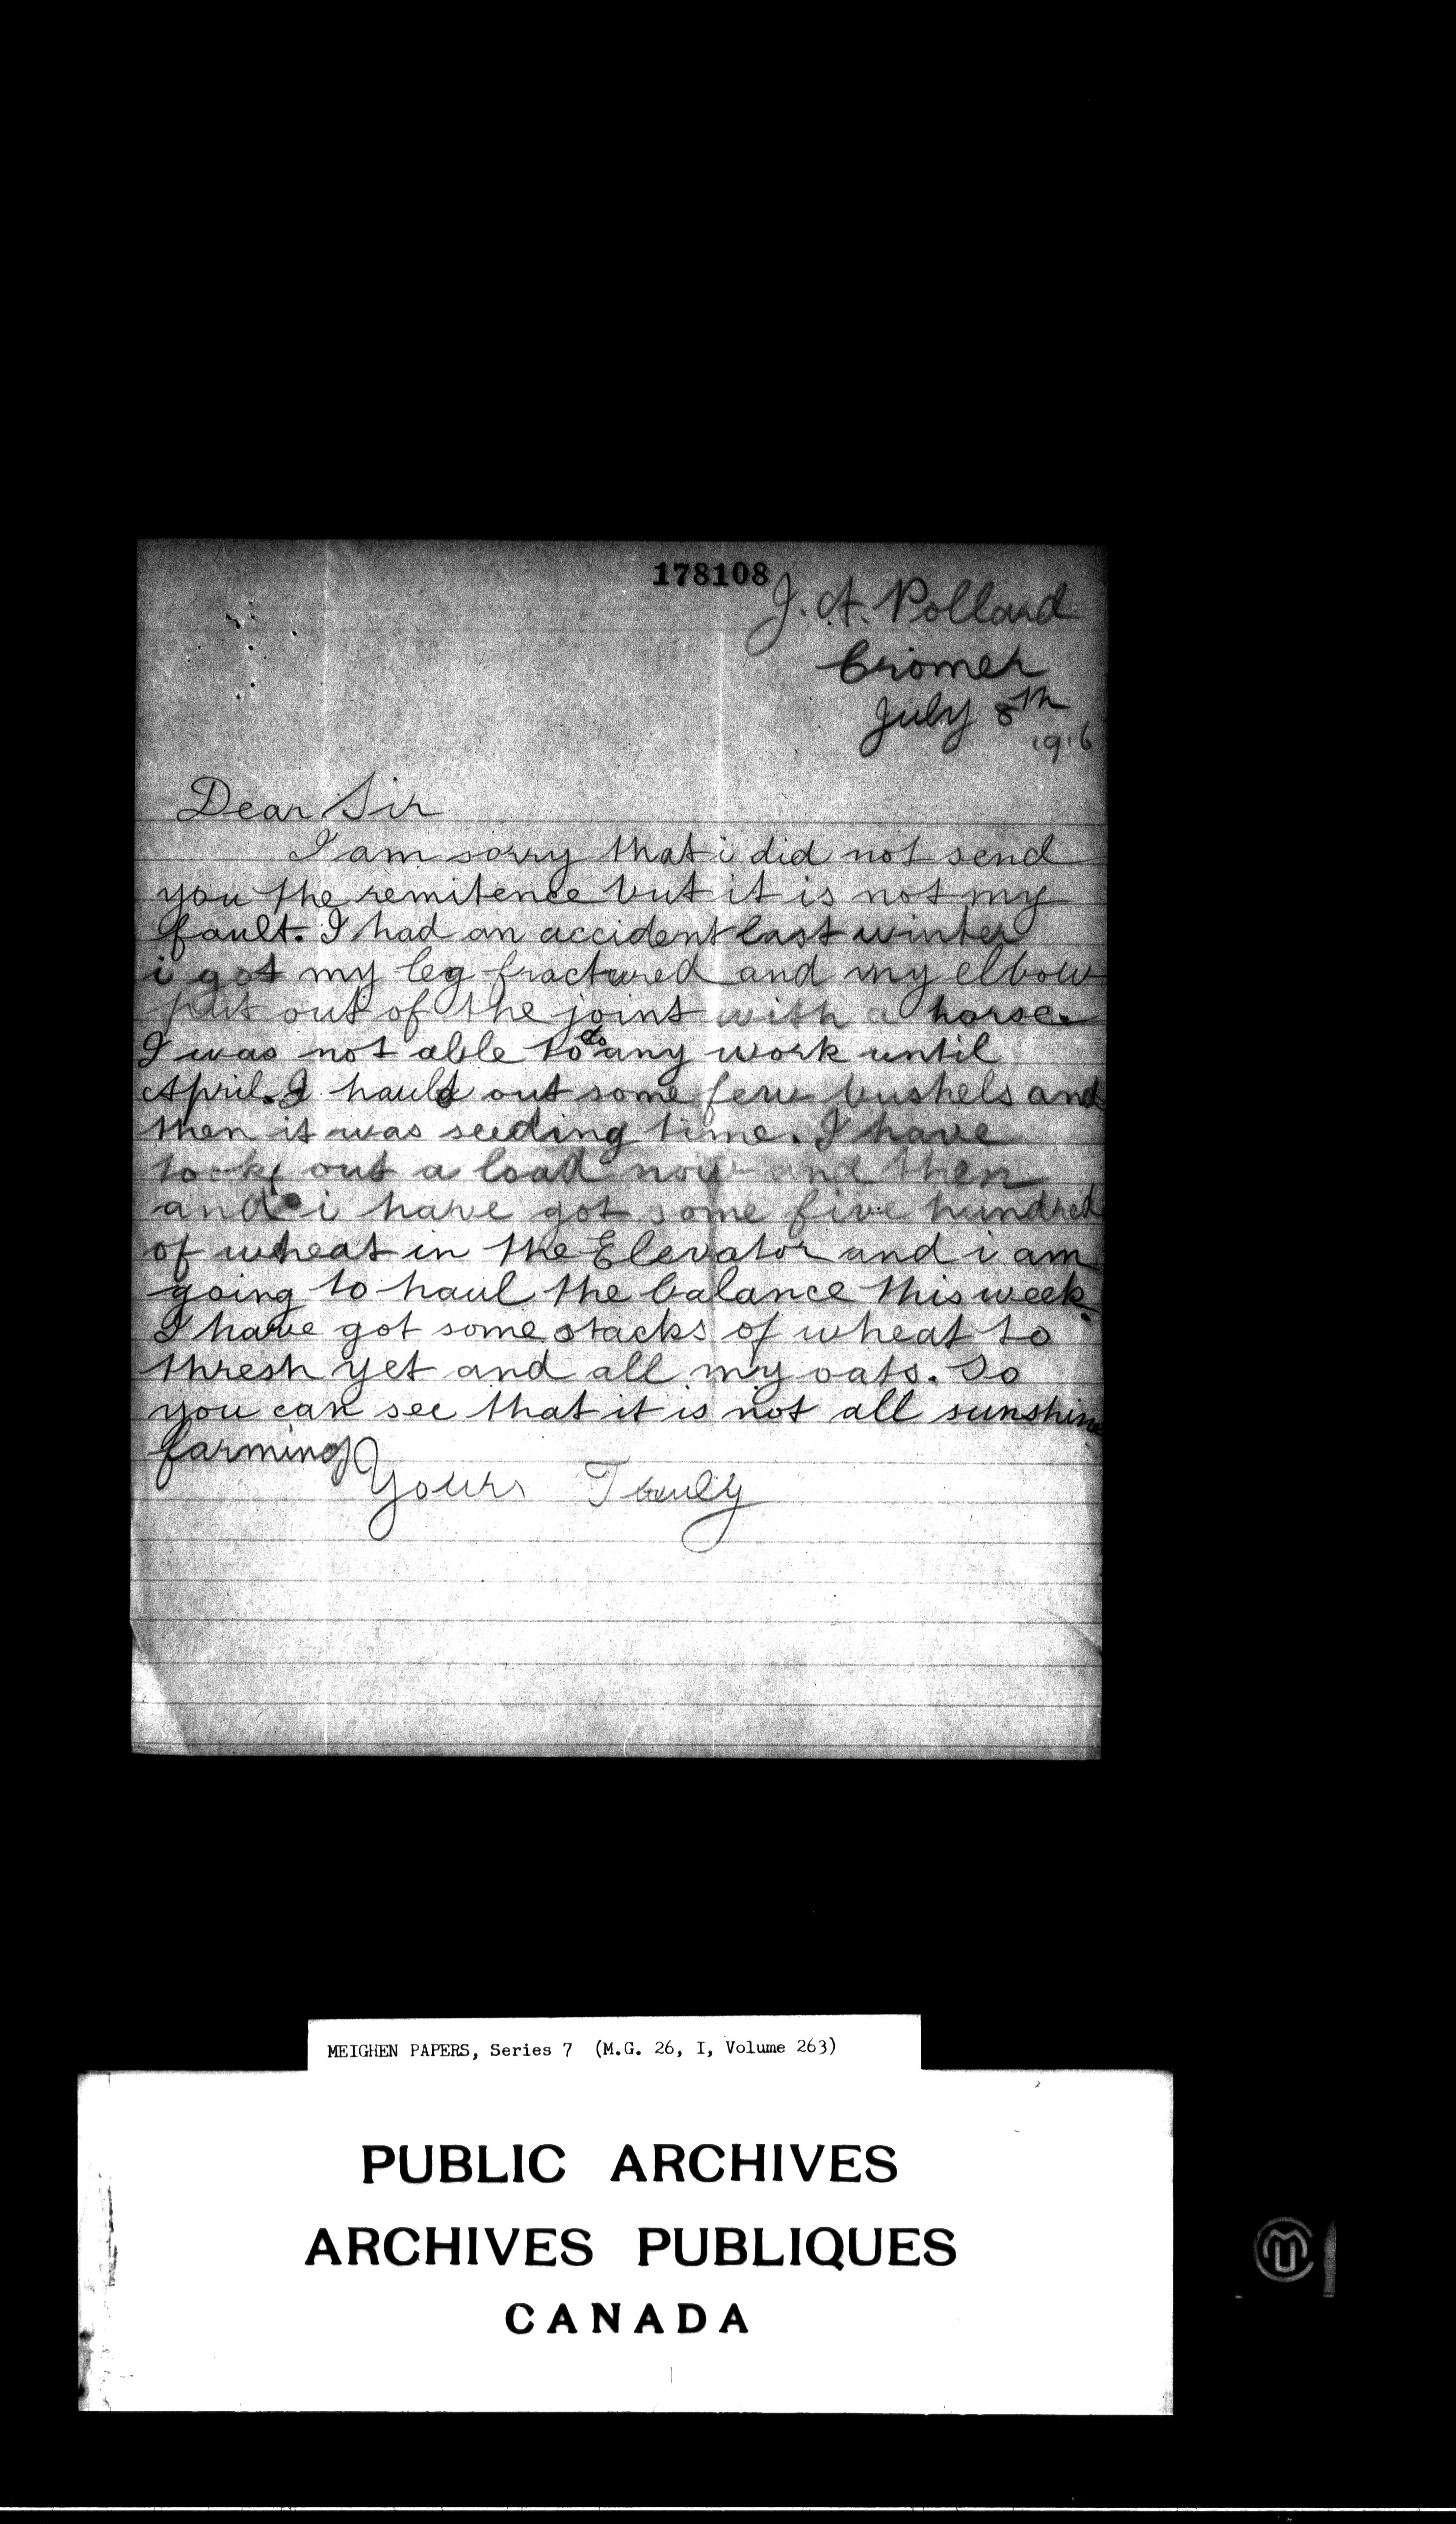 178108
J. A. Pollard
Cromer
July 8th
1916
Dear Sir
I am sorry that i did not send
you the remitence but it is not my
fault. I had an accident last winter
i got my leg fractured and my elbow
put out of the joint with a horse.
I was not able to do any work until
April. I hauld out some few bushels and
then it was seeding time. I have
took out a load now and then
and i have got some five hundred
of wheat in the Elevator and i am
going to haul the balance this week.
I have got some stacks of wheat to
thresh yet and all my oats. So
you can see that it is not all sunshine
farming
Yours Truly
MEIGHEN PAPERS, Series 7 (M.G. 26, I, Volume 263)
PUBLIC ARCHIVES
ARCHIVES PUBLIQUES
CANADA